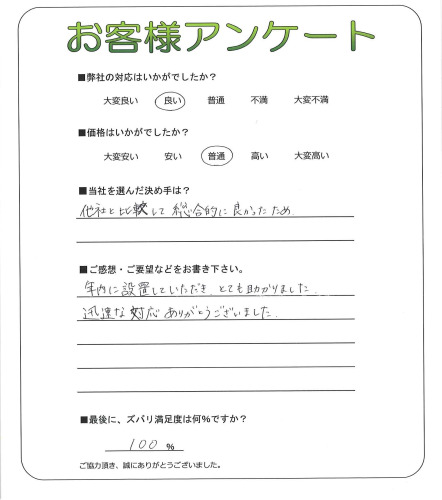 お客様アンケート
■弊社の対応はいかがでしたか？
大変良い 良い 普通 不満 大変不満
■価格はいかがでしたか？
大変安い 安い 普通 高い 大変高い
■当社を選んだ決め手は？
他社と比較して総合的に良かったため
■ご感想・ご要望などをお書き下さい。
年内に設置していただき、とても助かりました。
迅速な対応ありがとうございました。
■最後に、ズバリ満足度は何％ですか？
100 %
ご協力頂き、誠にありがとうございました。